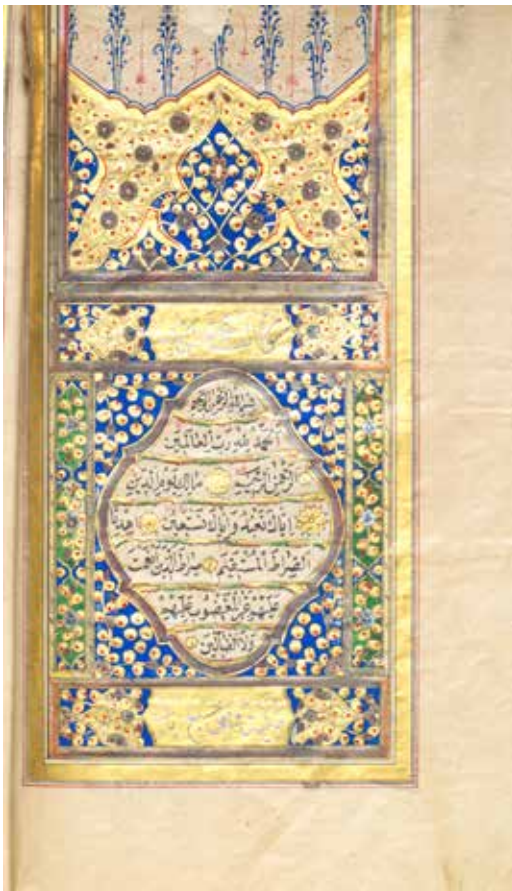 بِسْمِ اللهِ الرَّحْمٰنِ الرَّحِيمِ
اَلْحَمْدُ لِلّٰهِ رَبِّ الْعَالَمِينَ
اَلرَّحْمٰنِ الرَّحِيمِ مَالِكِ يَوْمِ الدِّينِ
اِيَّاكَ نَعْبُدُ وَاِيَّاكَ نَسْتَعِينُ اِهْدِنَا
الصِّرَاطَ الْمُسْتَقِيمَ صِرَاطَ الَّذِينَ اَنْعَمْتَ
عَلَيْهِمْ غَيْرِ الْمَغْضُوبِ عَلَيْهِمْ
وَلَا الضَّالِّينَ